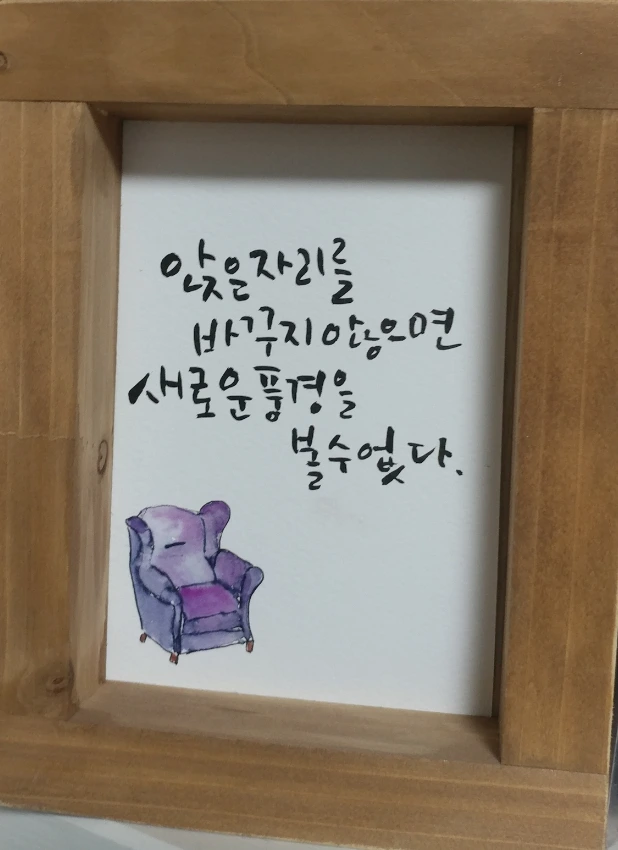 앉은자리를
바꾸지않으면
새로운풍경을
볼수없다.